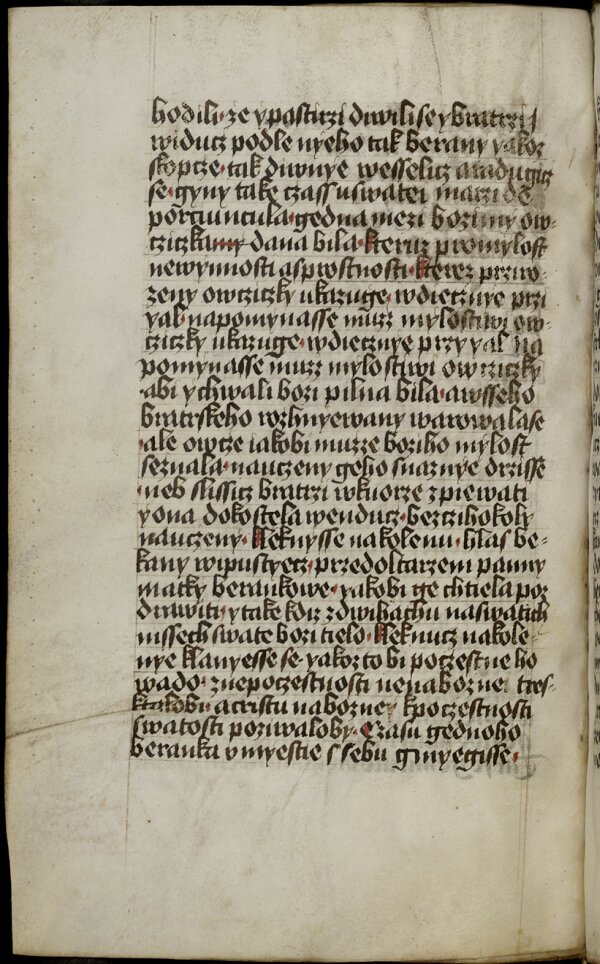 hodili·ze ypasturzi diwilise ybratrzij
widucz podle nyeho tak berany yakoz
skopcze·tak diwnye wesselicz aradugicz
se·gyny take czass uswatei marzi de
porciuncula·gedna mezi bozimy ow-
cziczkamy dana bila·kteruz promylost
newynnosti asprostnosti·kterez przyro-
zeny owcziczky ukazuge·wdiecznye przi
yal·napomynasse muzz mylostiwi ow-
cziczky ukazuge·wdiecznye przy yal na
pomynasse muzz mylostiwi owcziczky
·abi ychwali bozi pilna bila·awsseho
bratrskeho rozhnyewany warowalase
·ale owcze iakobi muzze boziho mylost
seznala·nauczeny geho snaznye drzisse
·neb slissicz bratrzi wkuorze zpiewati
yona dokostela wenducz·bezczihokoly
nauczeny·kleknysse nakolenu·hlas be-
kany wipustyecz·przedoltarzem panny
matky berankowe·yakobi ge chtiela poz
drawiti·ytake kdiz zdwihachu naswatich
missech swate bozi tielo·kleknucz nakole-
nye klanyesse se·yakoz to bi poczestne ho
wado·znepoczestnosti nenabozne· tres-
ktalobi·acristu nabozney kpoczestnosti
swatosti pozuwaloby·Czasu gednoho
beranka vmyestie ssebu gmyegisse·